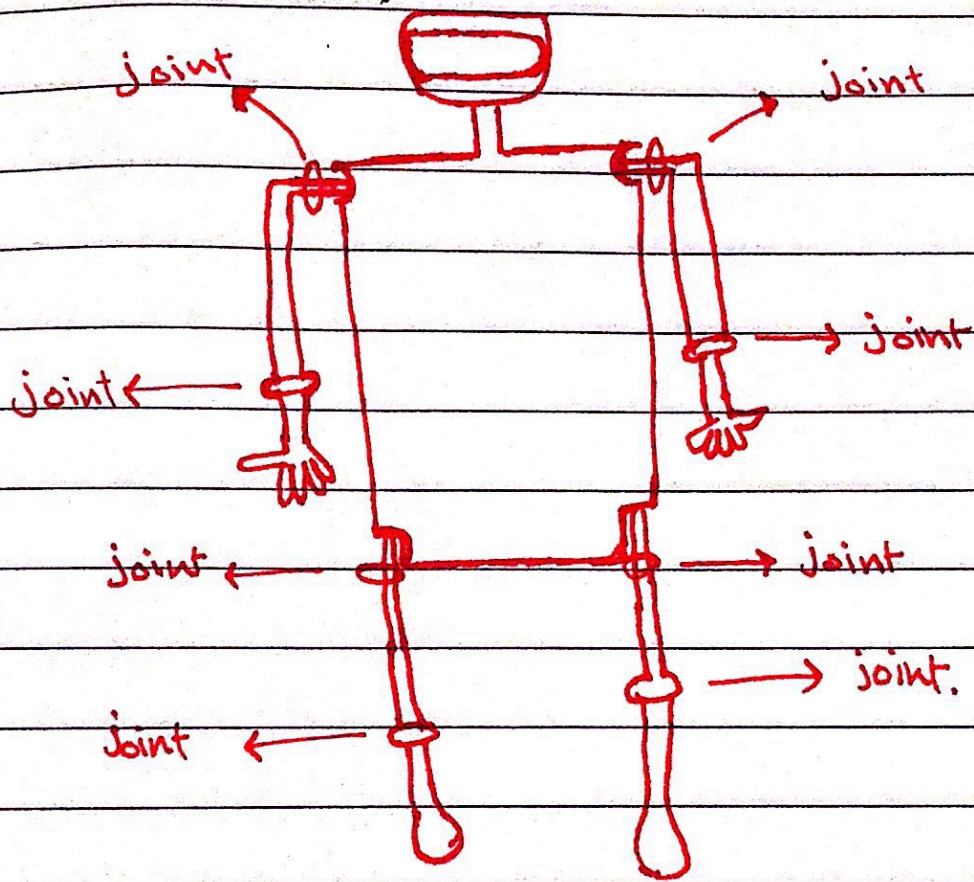 joint
joint
joint
joint
joint
joint
joint.
joint